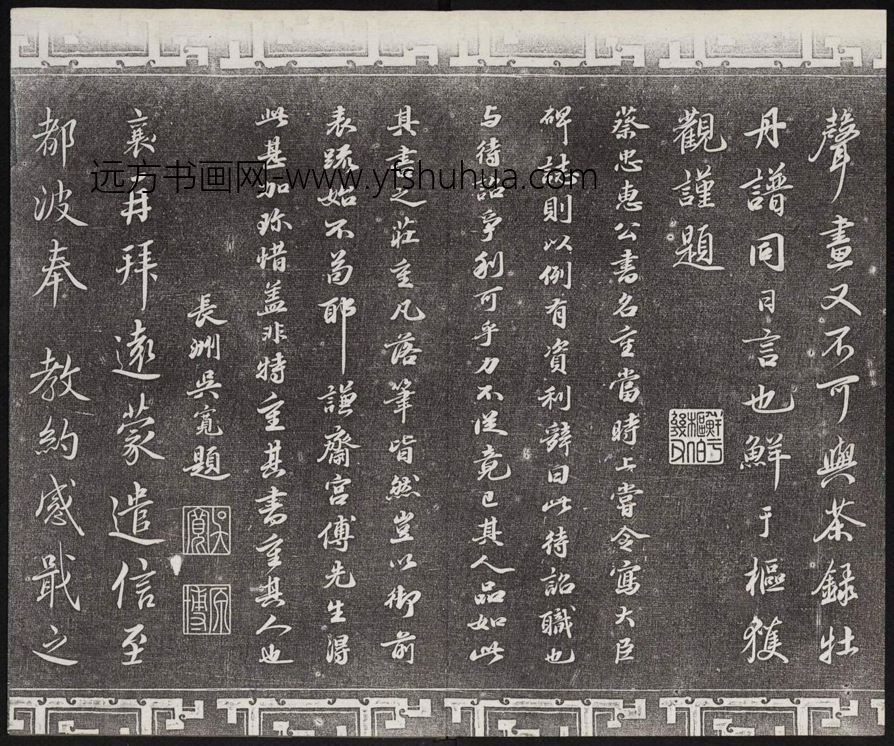 聲畫又不可與茶録牡
丹譜同日言也鮮于樞獲
觀謹題
鮮于樞伯幾父
蔡忠惠公書名重當時上嘗令寫大臣
碑誌則以例有資利辭曰此待詔職也
与待詔爭利可乎力不從竟已其人品如此
其書之莊重凡落筆皆然豈以御前
表疏始不苟耶謙齋宮傅先生得
此甚加珍惜蓋非特重其書重其人也
長洲吳寬題
吳寬
原博
襄再拜遠蒙遣信至
都波奉 教約感戢之
远方书画网-www.yfshuhua.com